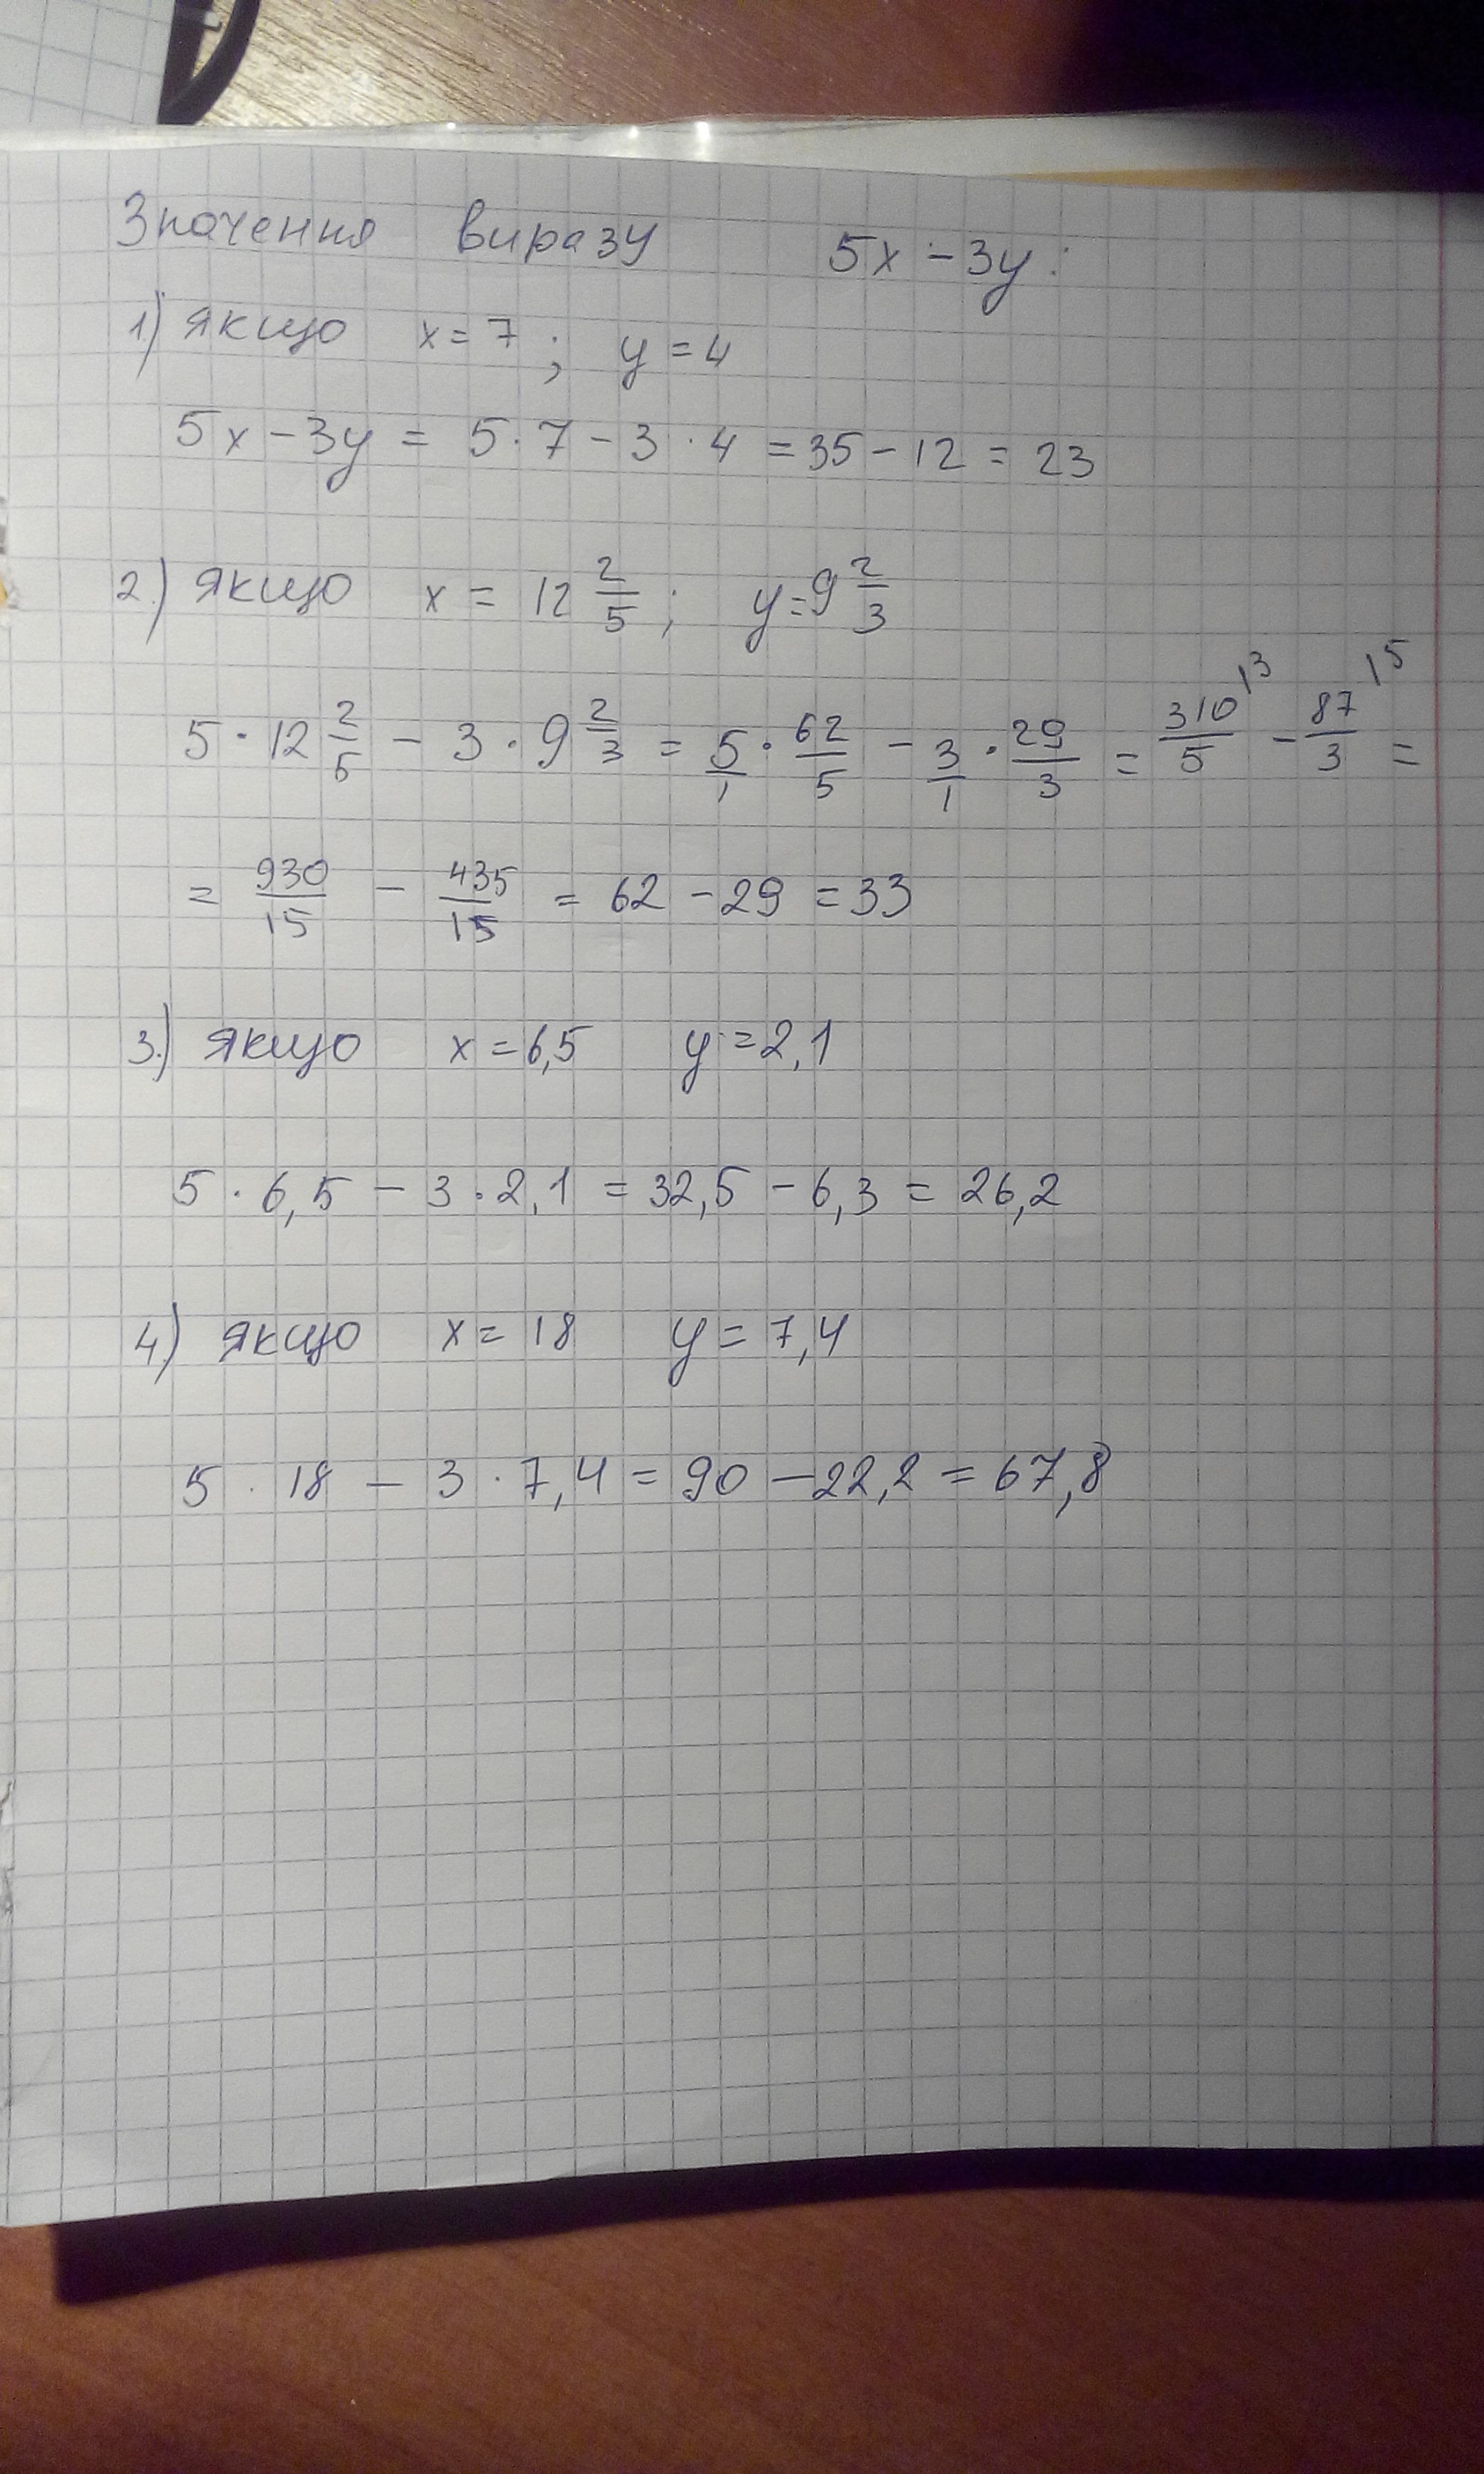 Значення виразу 5x - 3y:
1) якщо x = 7; y = 4
5x - 3y = 5 · 7 - 3 · 4 = 35 - 12 = 23
2.) якщо x = 12 2/5; y = 9 2/3
5 · 12 2/5 - 3 · 9 2/3 = 5/1 · 62/5 - 3/1 · 29/3 = 310/5 |3 - 87/3 |5 =
= 930/15 - 435/15 = 62 - 29 = 33
3.) якщо x = 6,5 y = 2,1
5 · 6,5 - 3 · 2,1 = 32,5 - 6,3 = 26,2
4.) якщо x = 18 y = 7,4
5 · 18 - 3 · 7,4 = 90 - 22,2 = 67,8